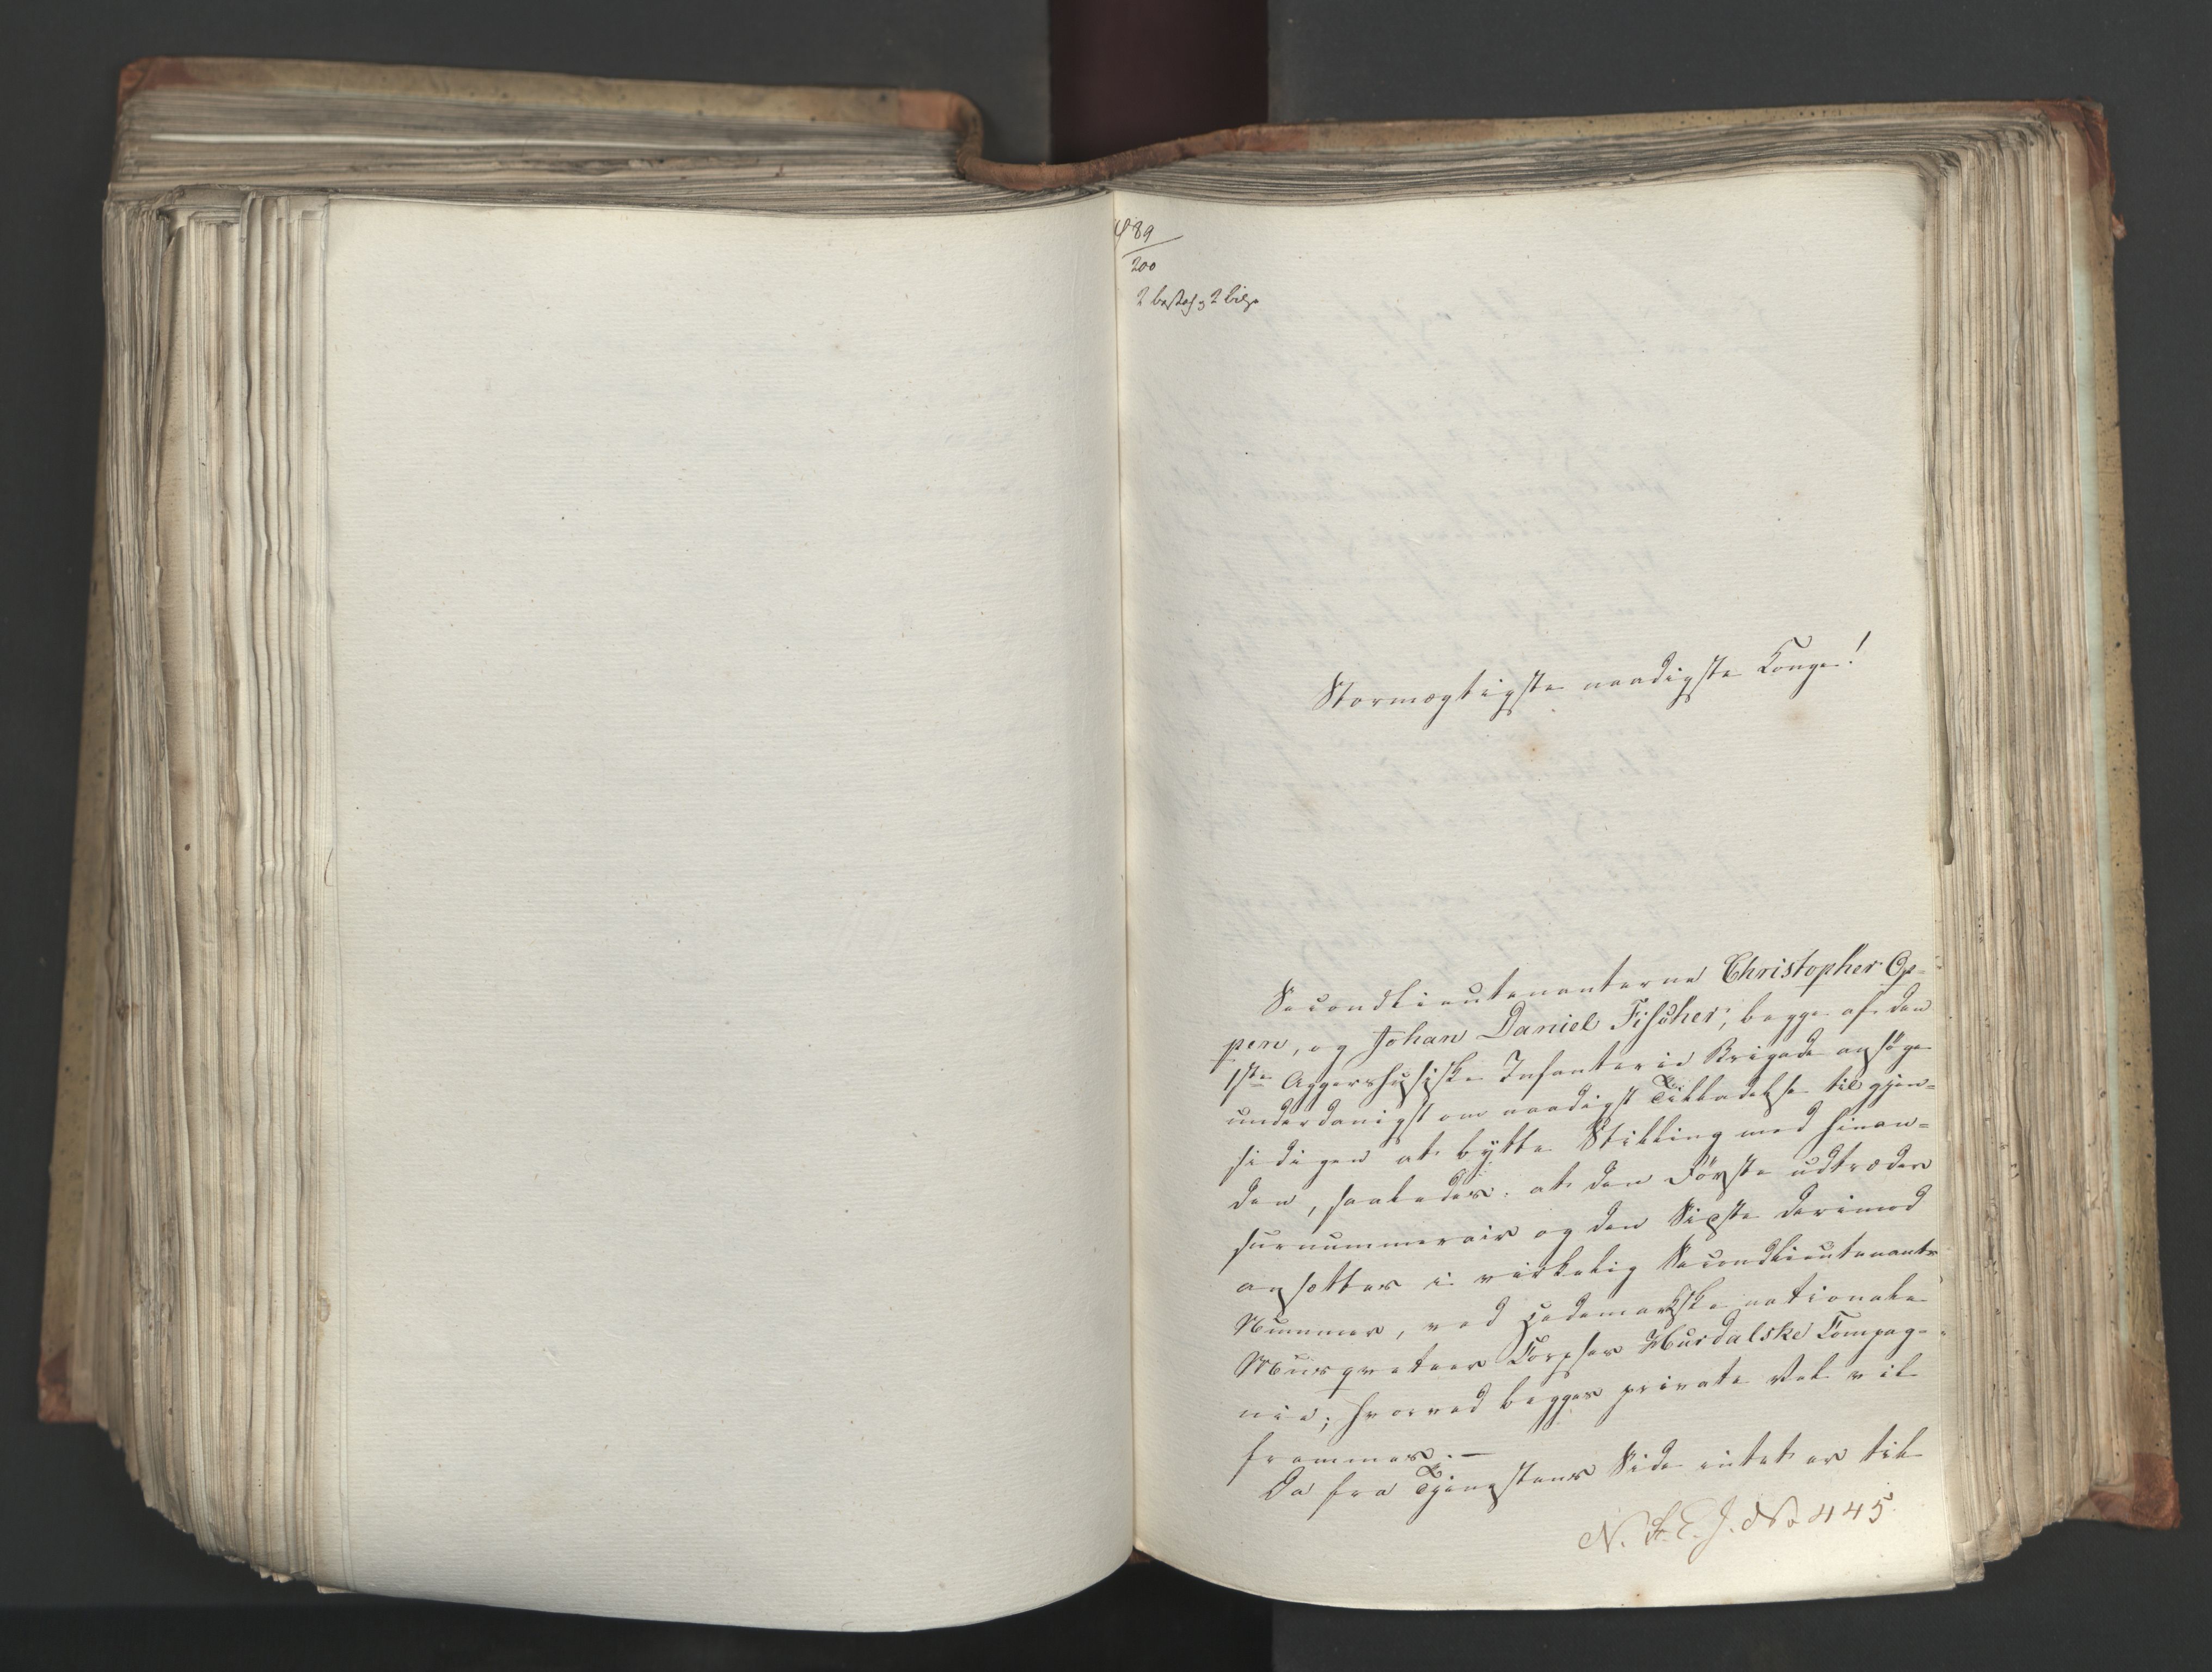 489
200
Stormægtigste naadigste Konge!
Secondlieutenanterne Christopher Op-
pen, og Johan Daniel Fischer, begge af den
1ste Aggershusiske Infanterie Brigade ansøge
underdanigst om naadigst Tilladelse til gjen=
sidigen at bytte Stilling med hinan=
den, saaledes: at den Første udtræder
surnummerair og den Sidste derimod
ansættes i virkelig Secondlieutenants
Nummer, ved Hedemarkske nationale
Musqueteer Corpses Hurdalske Compag-
nie; hvorved begges private Vel vil
fremmes. —
Da fra Tjenestens Side intet er til
N. St. E. J. No 445